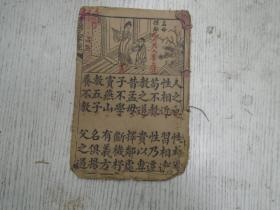 人之初 性本善
性相近 習相遠
苟不教 性乃遷
教之道 貴以專
昔孟母 擇鄰處
子不學 斷機杼
竇燕山 有義方
教五子 名俱揚
養不教 父之過